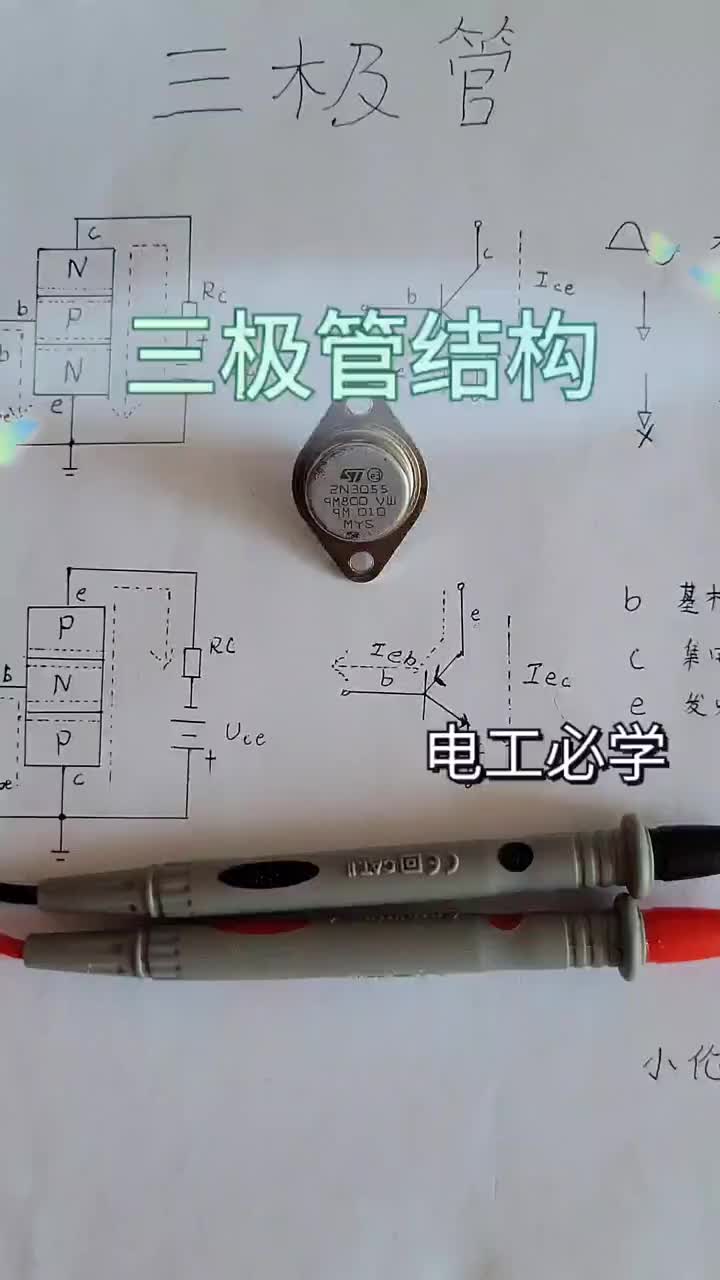 三极管
c
N
P
N
b
b
e
Rc
+
c
b
Ice
三极管结构
ST e3
2N3055
9M800 VW
9M 010
MYS
e
P
N
P
c
B
be
RC
Uce
+
e
Ieb
b
Iec
b 基
c 集
e 发
电工必学
CE CAT.II
小伦